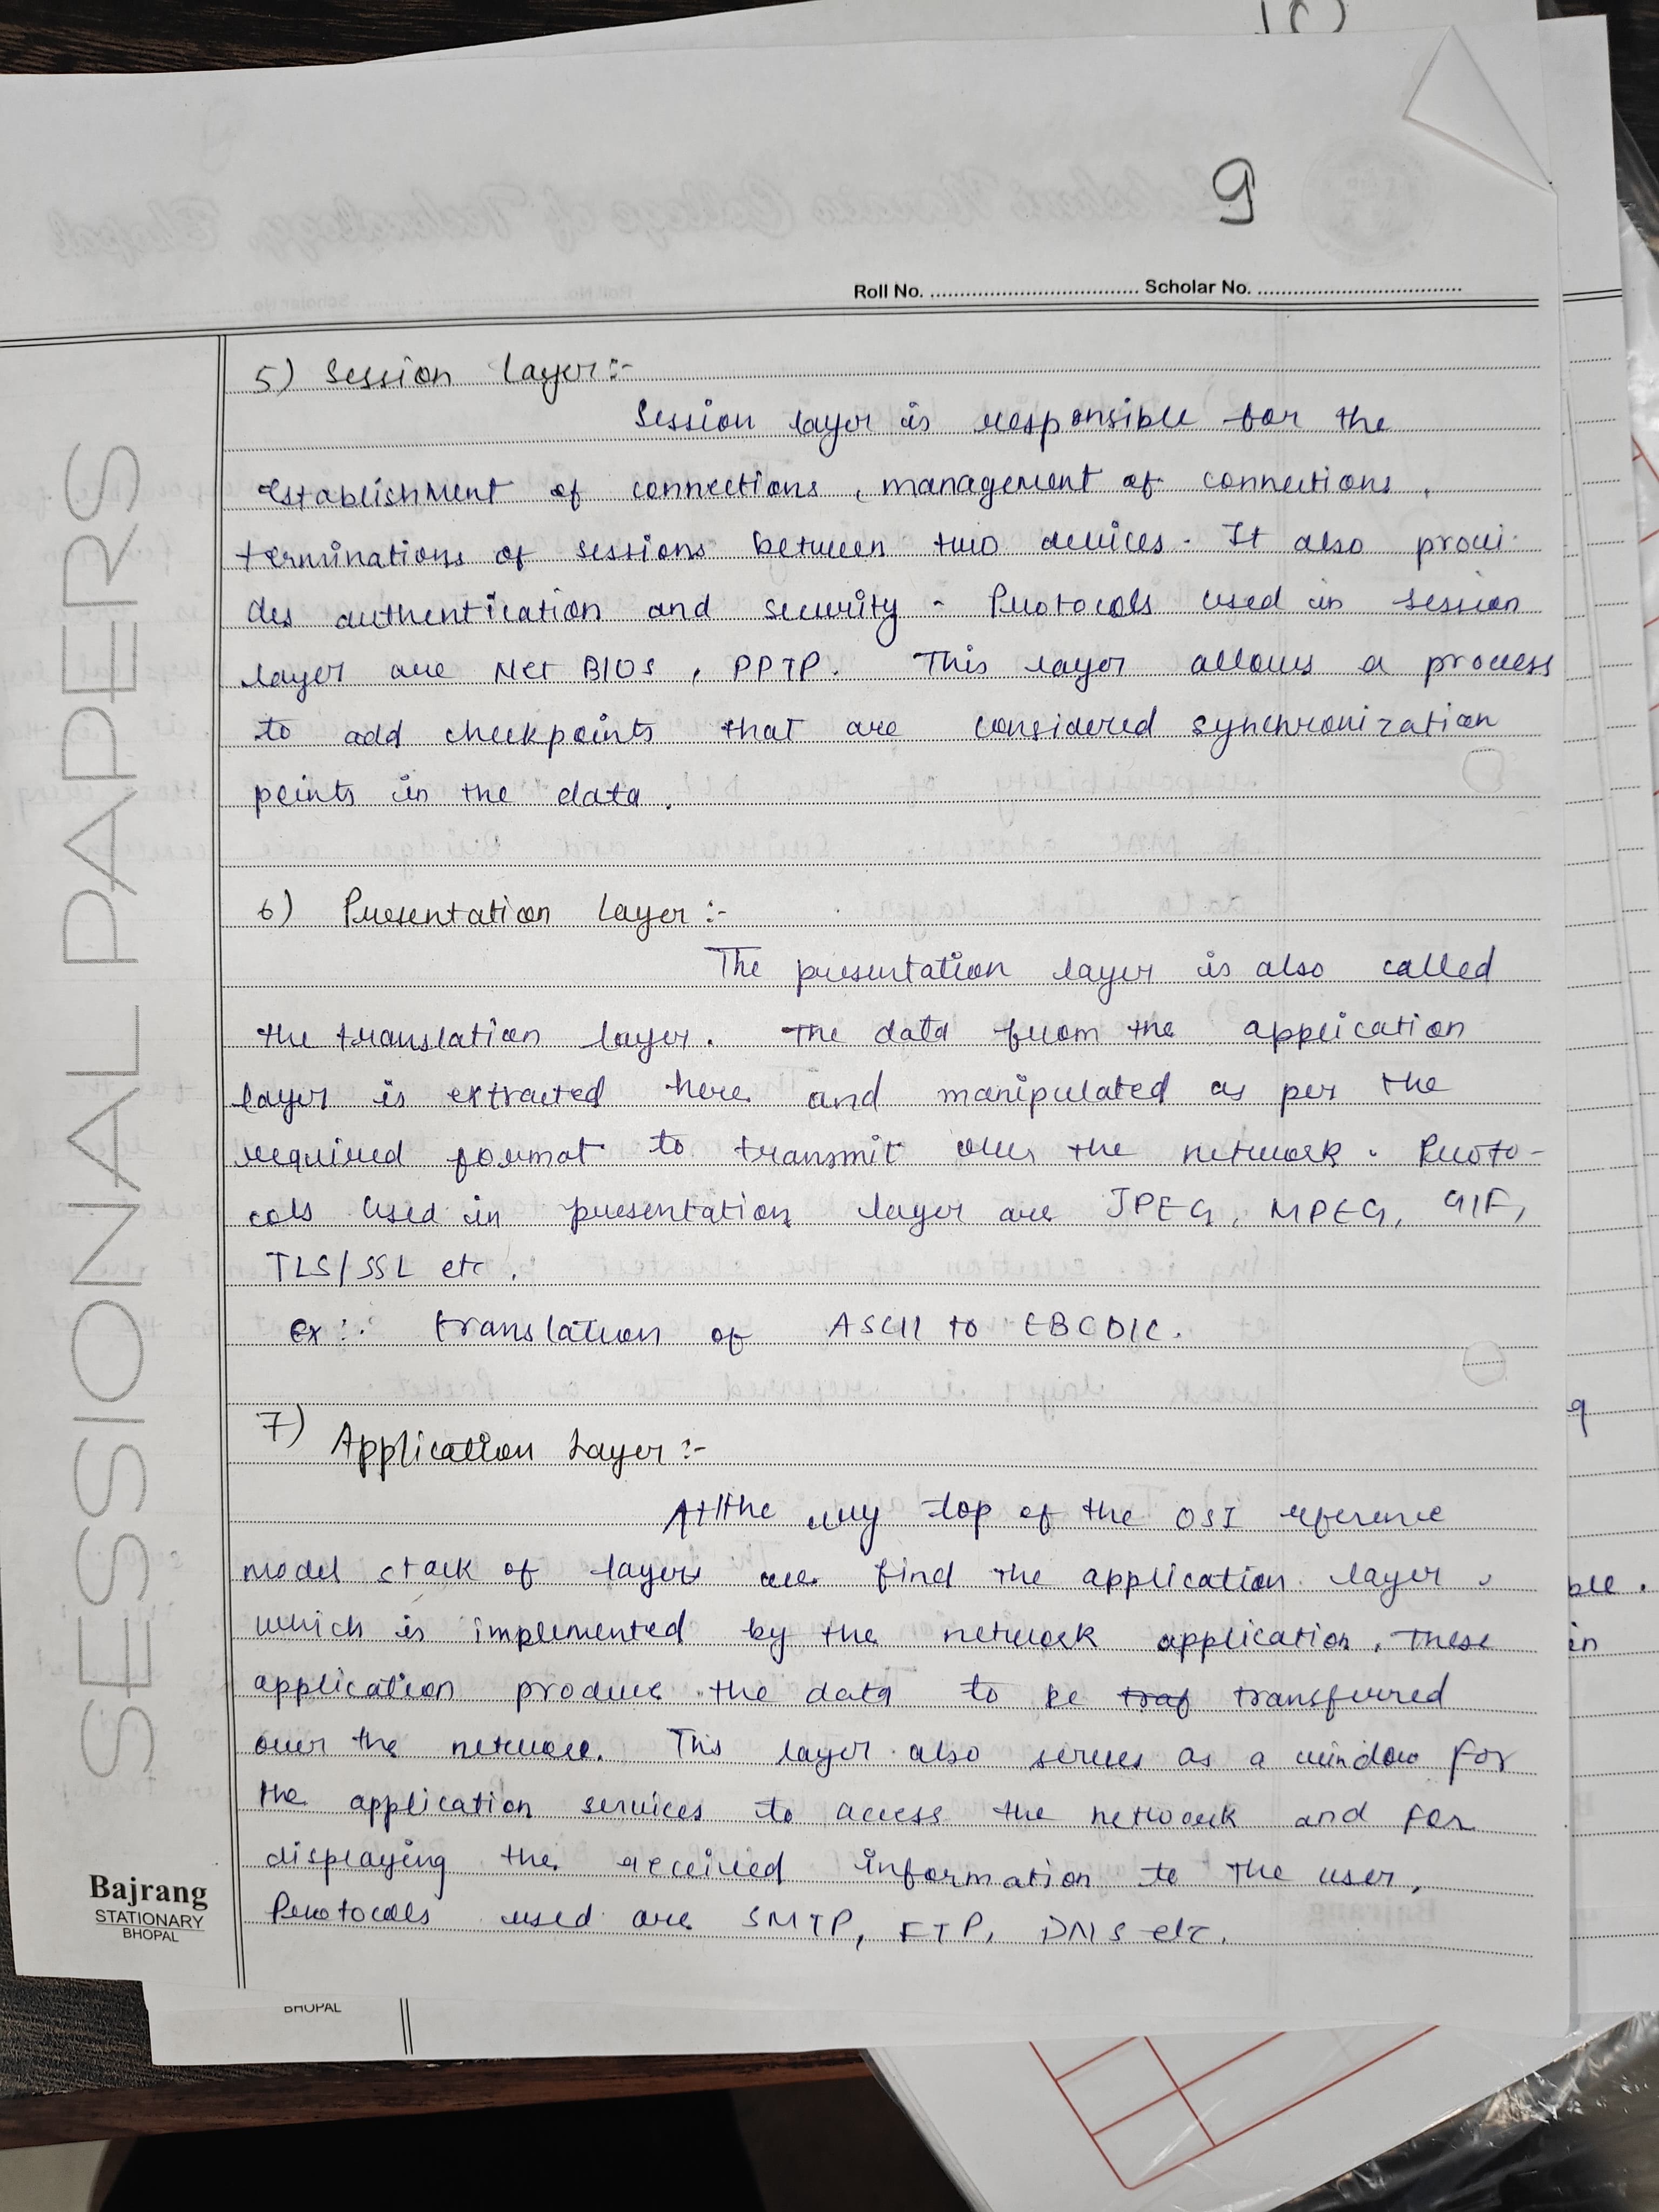 9
Roll No. .................................... Scholar No. ....................................
5) Session Layer :-
Session layer is responsible for the
establishment of connections, management of connections,
terminations of sessions between two devices. It also provi-
des authentication and security. Protocols used in session
layer are Net BIOS, PPTP. This layer allows a process
to add checkpoints that are considered synchronization
points in the data.
6) Presentation Layer :-
The presentation layer is also called
the translation layer. The data from the application
layer is extracted here and manipulated as per the
required format to transmit over the network. Proto-
cols used in presentation layer are JPEG, MPEG, GIF,
TLS/SSL etc.
ex :. translation of ASCII to EBCDIC.
7) Application Layer :-
At the very top of the OSI reference
model stack of layers we find the application layer,
which is implemented by the network application. These
application produce the data to be transferred
over the network. This layer also serves as a window for
the application services to access the network and for
displaying the received information to the user.
Protocols used are SMTP, FTP, DNS etc.
SESSIONAL PAPERS
Bajrang
STATIONARY
BHOPAL
BHOPAL
ble.
in